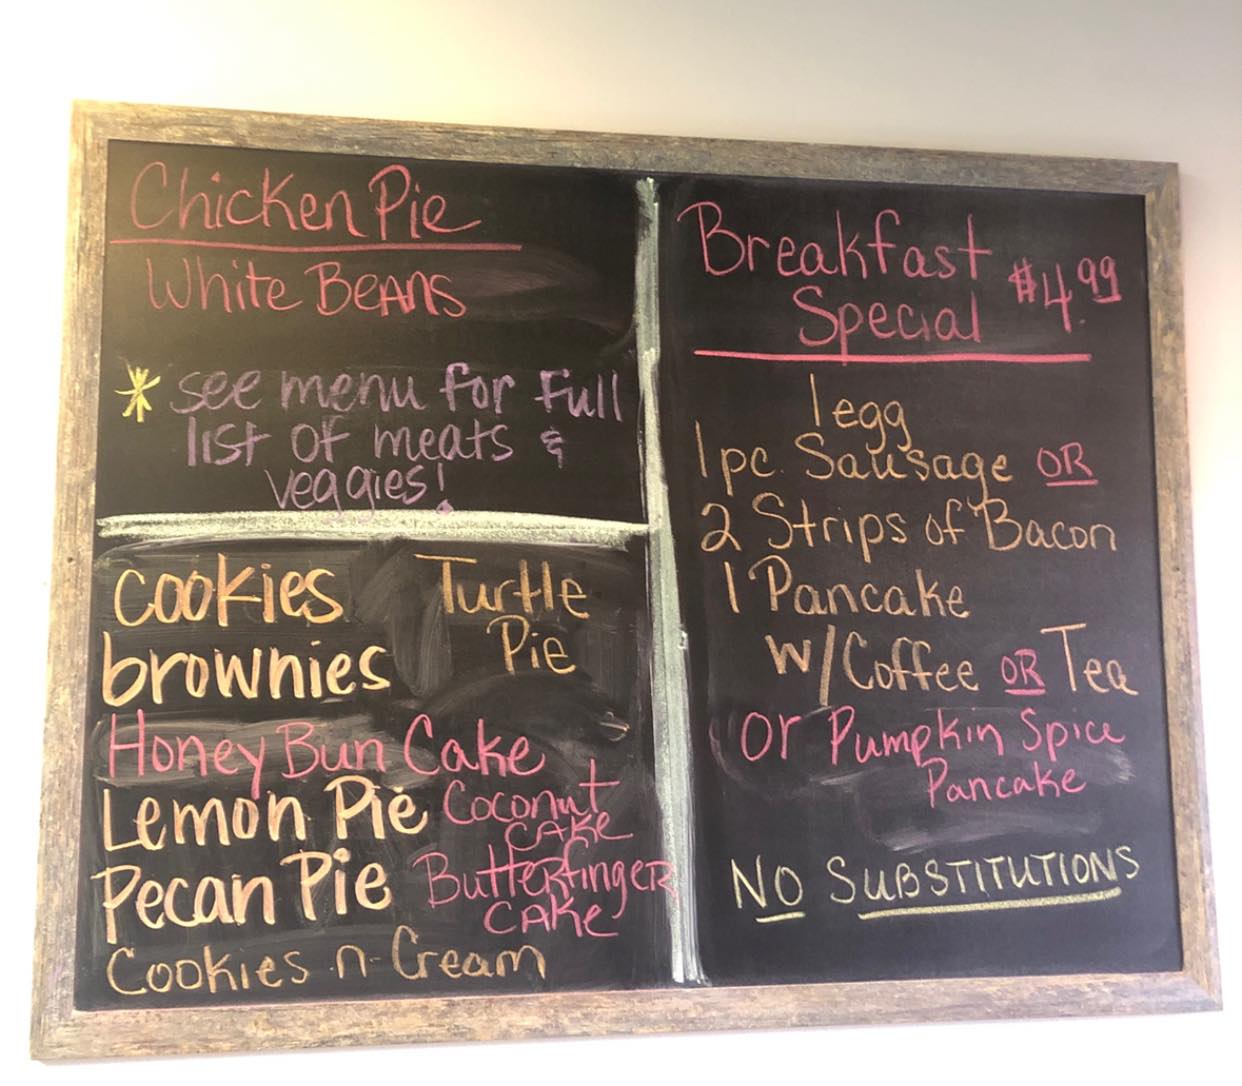 Chicken Pie
White Beans
* see menu for Full
list of meats &
veggies!
cookies
brownies
Turtle
Pie
Honey Bun Cake
Lemon Pie
Coconut
CAKe
Pecan Pie
Butterfinger
CAKe
Cookies n Cream
Breakfast
Special $4.99
1 egg
1 pc. Sausage OR
2 Strips of Bacon
1 Pancake
w/Coffee OR Tea
or Pumpkin Spice
Pancake
NO SUBSTITUTIONS